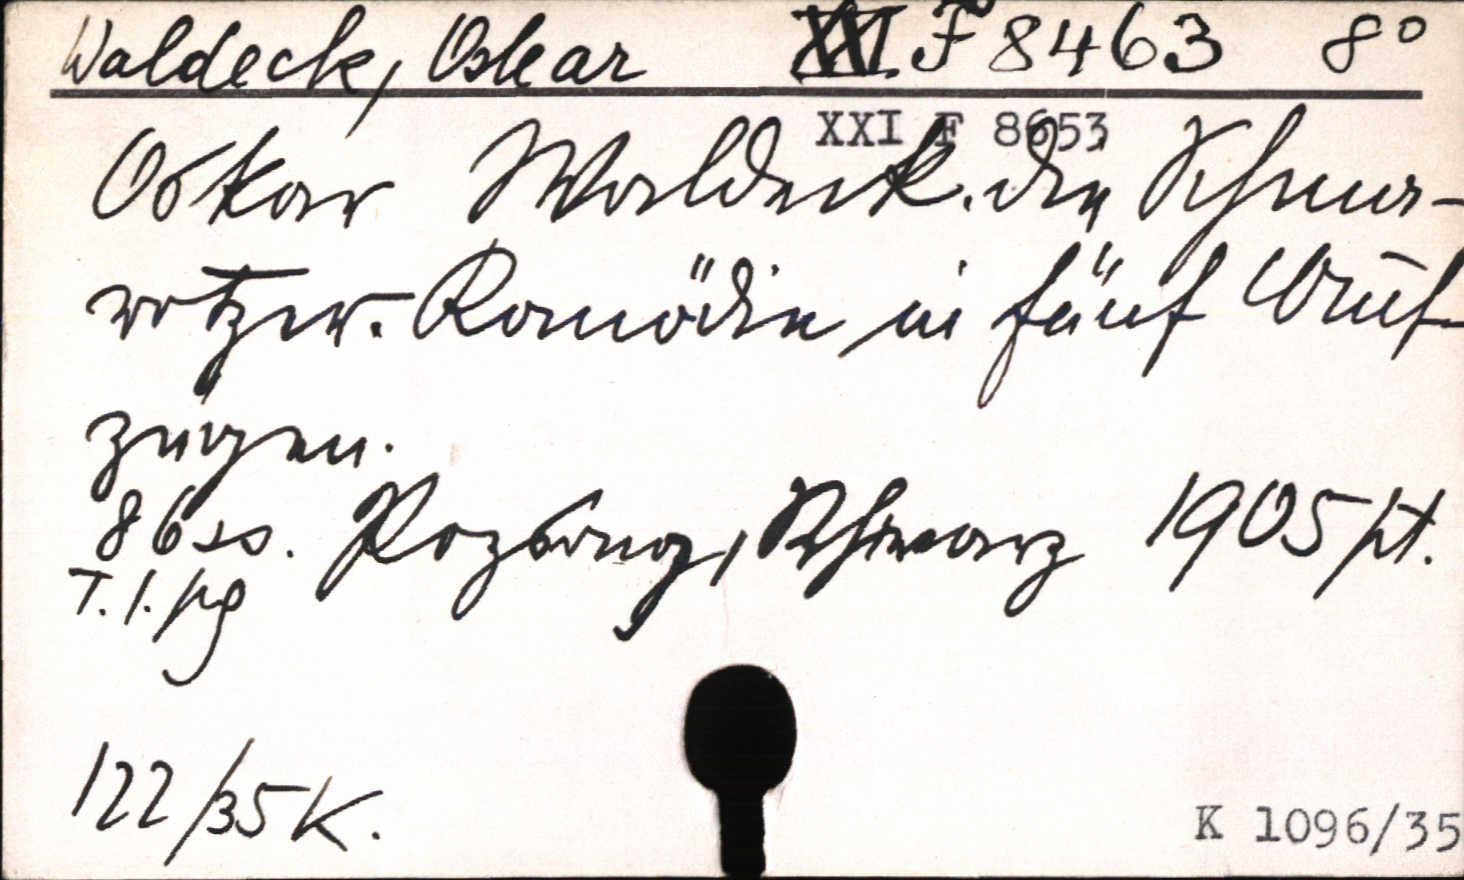 Waldeck, Oskar XXI. F 8463 8°
XXI F 8653
Oskar Waldeck. Die Schmar-
rotzer. Komödie in fünf Auf-
zügen.
86 ss. Pozsony, Schwarz 1905 pt.
T. l. pg
122/35 K.
K 1096/35